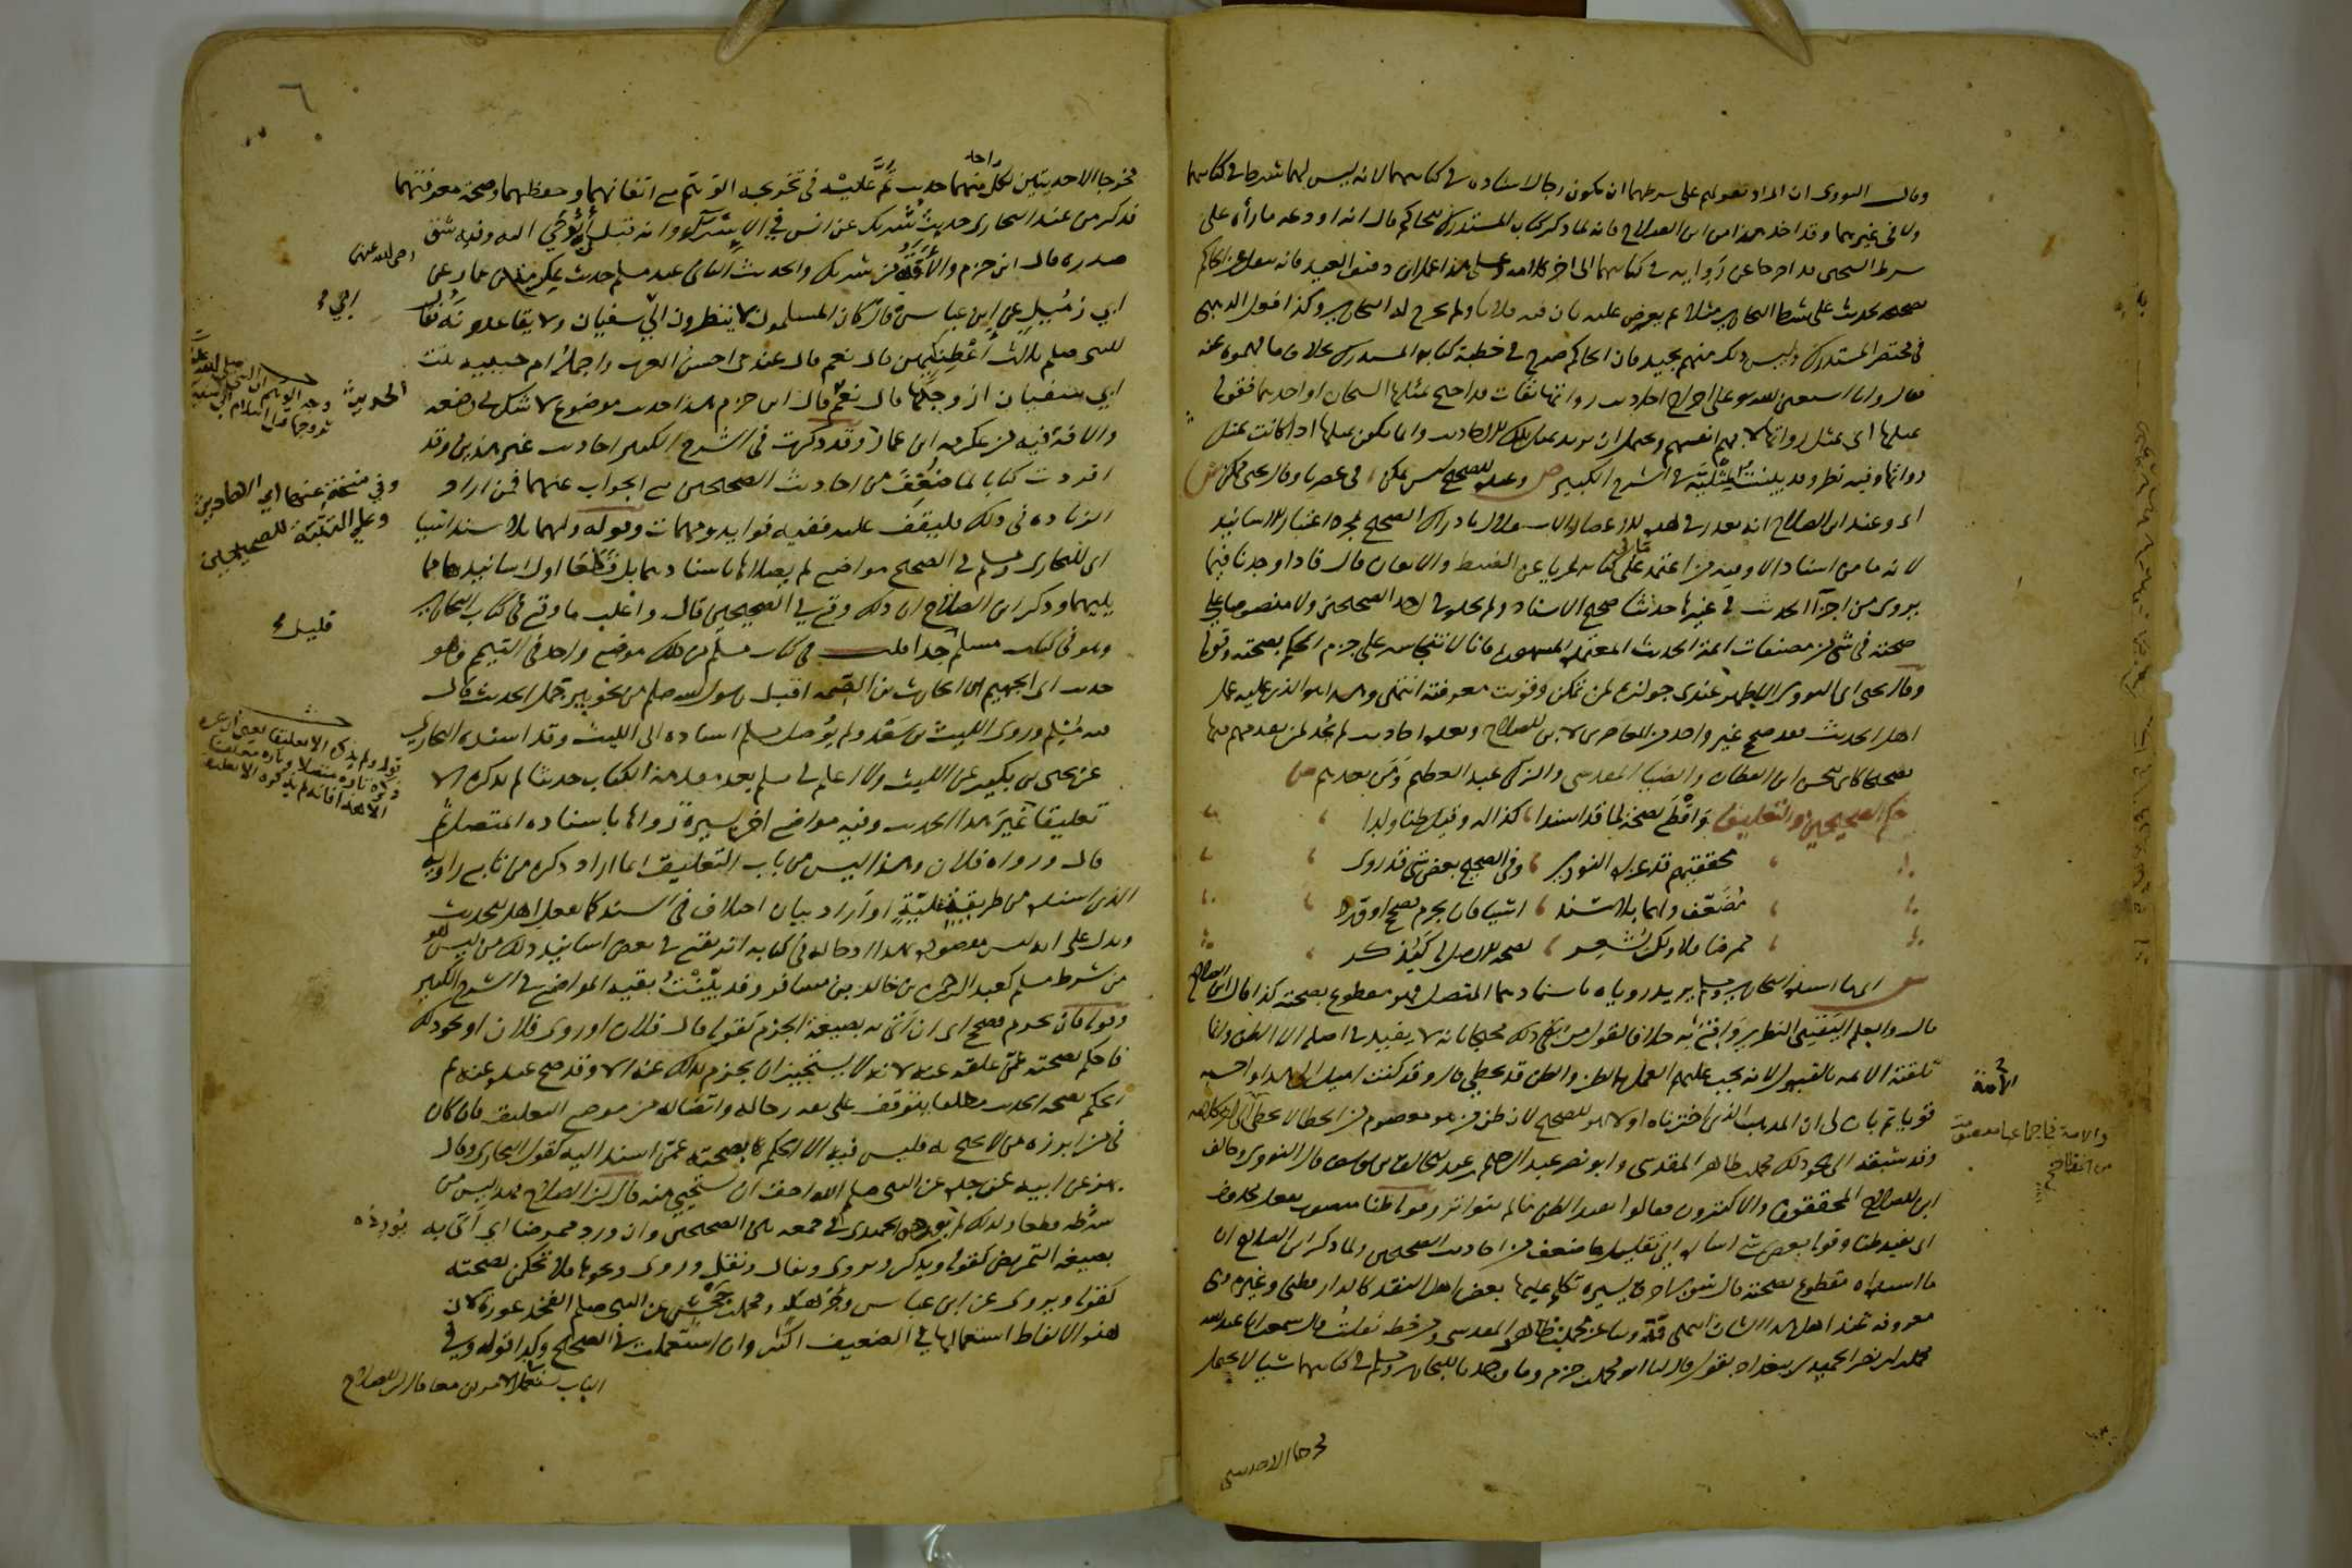 وقال النووى ان المراد بقولهم على شرطهما ان يكون رجال اسناده في كتابيهما لانه ليس لهما شرط في كتابيهما
ولا في غيرهما وقد اخذ هذا من ابن الصلاح فانه لما ذكر كتاب المستدرك للحاكم قال انه اودعه ما رأه على
شرط الشيخين قد اخرجا عن رواته في كتابيهما الى اخر كلامه وعلى هذا عمل ابن دقيق العيد فانه ينقل عن الحاكم
تصحيحه لحديث على شرط البخاري مثلا ثم يعترض عليه بان فيه فلانا ولم يخرج له البخاري وكذا فعل الذهبي
في مختصر المستدرك وليس ذلك منهم بجيد فان الحاكم صرح في خطبة كتابه المستدرك بخلاف ما فهموه عنه
فقال وانا استعين الله على اخراج احاديث رواتها ثقات قد احتج بمثلها الشيخان او احدهما فقوله
بمثلها اى بمثل رواتها لا بهم انفسهم ويحتمل ان يريد بمثل تلك الاحاديث وانما يكون بمثلها اذا كانت بمثل
رواتها وفيه نظر وقد بينت المثلية في الشرح الكبير ص وعنده التصحيح ليس يمكن في عصرنا وقال يحيى ممكن ش
اى وعند ابن الصلاح انه تعذر في هذه الاعصار الاستقلال بادراك الصحيح بمجرد اعتبار الاسانيد
لانه ما من اسناد الا وفيه من اعتمد على ما في كتابه عريا عن الضبط والاتقان قال فاذا وجدنا فيما
يروى من اجزآ الحديث في غيرها حديثا صحيح الاسناد ولم نجده في احد الصحيحين ولا منصوصا على
صحته في شى من مصنفات ائمة الحديث المعتمدة المشهورة فانا لا نتجاسر على جزم الحكم بصحته وقوله
وقال يحيى اى النووى الاظهر عندى جوازه لمن تمكن وقويت معرفته انتهى وهذا هو الذى عليه عمل
اهل الحديث فقد صحح غير واحد من المعاصرين لابن الصلاح وبعده احاديث لم نجد لمن تقدمهم فيها
تصحيحا كابى الحسن ابن القطان والضيا المقدسى والزكى عبد العظيم ومن بعدهم ص
حكم الصحيحين والتعليق واقطع بصحة لما قد اسندا كذا له وقيل ظنا ولدا
محققيهم قد عزاه النووى وفي الصحيح بعض شى قد روى
مضعف ولهما بلا سند اشيا فان يجزم فصحح او ورد
ممرضا فلا ولكن يشعر بصحة الاصل له كيذكر
ش اى ما اسنده البخاري ومسلم يريد روياه باسنادهما المتصل فهو مقطوع بصحته كذا قال ابن الصلاح
قال والعلم اليقينى النظري واقع به خلافا لقول من نفى ذلك محتجا بانه لا يفيد في اصله الا الظن وانما
تلقته الامة بالقبول لانه يجب عليهم العمل بالظن والظن قد يخطي قال وقد كنت اميل الى هذا واحسبه
قويا ثم بان لي ان المذهب الذى اخترناه اولا هو الصحيح لان ظن من هو معصوم من الخطا لا يخطى الى اخر كلامه
وقد سبقه الى نحو ذلك محمد بن طاهر المقدسى وابو نصر عبد الرحيم بن عبد الخالق بن يوسف قال النووى وخالف
ابن الصلاح المحققون والاكثرون فقالوا يفيد الظن ما لم يتواتر وقوله ظنا منصوب بفعل محذوف
اى يفيد ظنا وقوله بعض شى اشارة الى تقليل ما ضعف من احاديث الصحيحين ولما ذكر ابن الصلاح ان
ما اسنداه مقطوع بصحته قال سوى احرف يسيره تكلم عليها بعض اهل النقد كالدارقطنى وغيره وهى
معروفة عند اهل هذا الشان انتهى وروينا عن محمد بن طاهر المقدسى ومن خطه نقلت قال سمعت ابا عبد الله
محمد بن ابى نصر الحميدى ببغداد يقول قال لنا ابو محمد بن حزم وما وجدنا للبخاري ومسلم في كتابيهما شيا لا يحتمل
مخرجا الا حديثين
الامة
والامة في اجماعها معصومة
من الخطا
٦
مخرجا الا حديثين لكل واحد منهما حديث تم عليه في تخريجه الوهم مع اتقانهما وحفظهما وصحة معرفتهما
فذكر من عند البخارى حديث شريك عن انس في الاسراء وانه قبل ان يوحى اليه وفيه شق
صدره قال ابن حزم والآفة من شريك والحديث الثانى عند مسلم حديث عكرمة بن عمار عن
ابي زميل عن ابن عباس قال كان المسلمون لا ينظرون الى ابي سفيان ولا يقاعدونه فقال
للنبى صلعم ثلاث اعطنيهن قال نعم قال عندى احسن العرب واجمله ام حبيبه بنت
ابي سفيان ازوجكها قال نعم قال ابن حزم هذا حديث موضوع لا شك في وضعه
والافة فيه من عكرمة ابن عمار وقد ذكرت في الشرح الكبير احاديث غير هذين وقد
افردت كتابا لما ضعف من احاديث الصحيحين مع الجواب عنها فمن اراد
الزيادة في ذلك فليقف عليه ففيه فوايد ومهمات وقوله ولهما بلا سند اشيا
اى للبخارى ومسلم في الصحيح مواضع لم يصلاها باسنادهما بل قطعا اول اسانيدها مما
يليهما وذكر ابن الصلاح ان ذلك وقع في الصحيحين قال واغلب ما وقع في كتاب البخاري
وهو في كتاب مسلم قليل جدا قلت في كتاب مسلم من ذلك موضع واحد في التيمم وهو
حديث ابى الجهيم ابن الحارث بن الصمة اقبل رسول الله صلعم من نحو بير جمل الحديث قال
فيه مسلم وروى الليث بن سعد ولم يوصل مسلم اسناده الى الليث وقد اسنده البخارى
عن يحيى بن بكير عن الليث ولا اعلم في مسلم بعد مقدمة الكتاب حديثا لم يذكره الا
تعليقا غير هذا الحديث وفيه مواضع اخر يسيرة رواها باسناده المتصل ثم
قال ورواه فلان وهذا ليس من باب التعليق انما اراد ذكر من تابع راويه
الذى اسنده من طريقه عليه او اراد بيان اختلاف في السند كما يفعل اهل الحديث
ويدل على انه ليس مقصوده بهذا ادخاله في كتابه انه يقع في بعض اسانيد ذلك من ليس هو
من شرط مسلم كعبد الرحمن بن خالد بن مسافر وقد بينت بقية المواضع في الشرح الكبير
وقوله فان يجزم فصحح اى ان اتى به بصيغة الجزم كقوله قال فلان او روى فلان او نحو ذلك
فاحكم بصحته عمن علقه عنه لانه لا يستجيز ان يجزم بذلك عنه الا وقد صح عنده عنه ثم
الحكم بصحة الحديث مطلقا يتوقف على ثقة رجاله واتصاله من موضع التعليق فان كان
فيمن ابرزه من لا يحتج به فليس فيه الا الحكم بصحته عمن اسند اليه كقول البخارى وقال
بهز عن ابيه عن جده عن النبى صلعم الله احق ان يستحيي منه قال ابن الصلاح فهذا ليس من
شرطه قطعا ولذلك لم يورده الحميدى في جمعه بين الصحيحين وان ورد ممرضا اى اتى به
بصيغة التمريض كقوله ويذكر ويروى ويقال ونقل وروى ونحوها فلا تحكمن بصحته
كقوله ويروى عن ابن عباس وجرهد ومحمد بن جحش عن النبى صلعم الفخذ عورة لان
هذه الالفاظ استعمالها في الضعيف اكثر وان استعملت في الصحيح وكذا قوله وفي
الباب تستعمل في الامرين معا قال ابن الصلاح
رضى الله عنهما
الحديث
وفي نسخة عنهما اى الحديثين
قليل
يورده